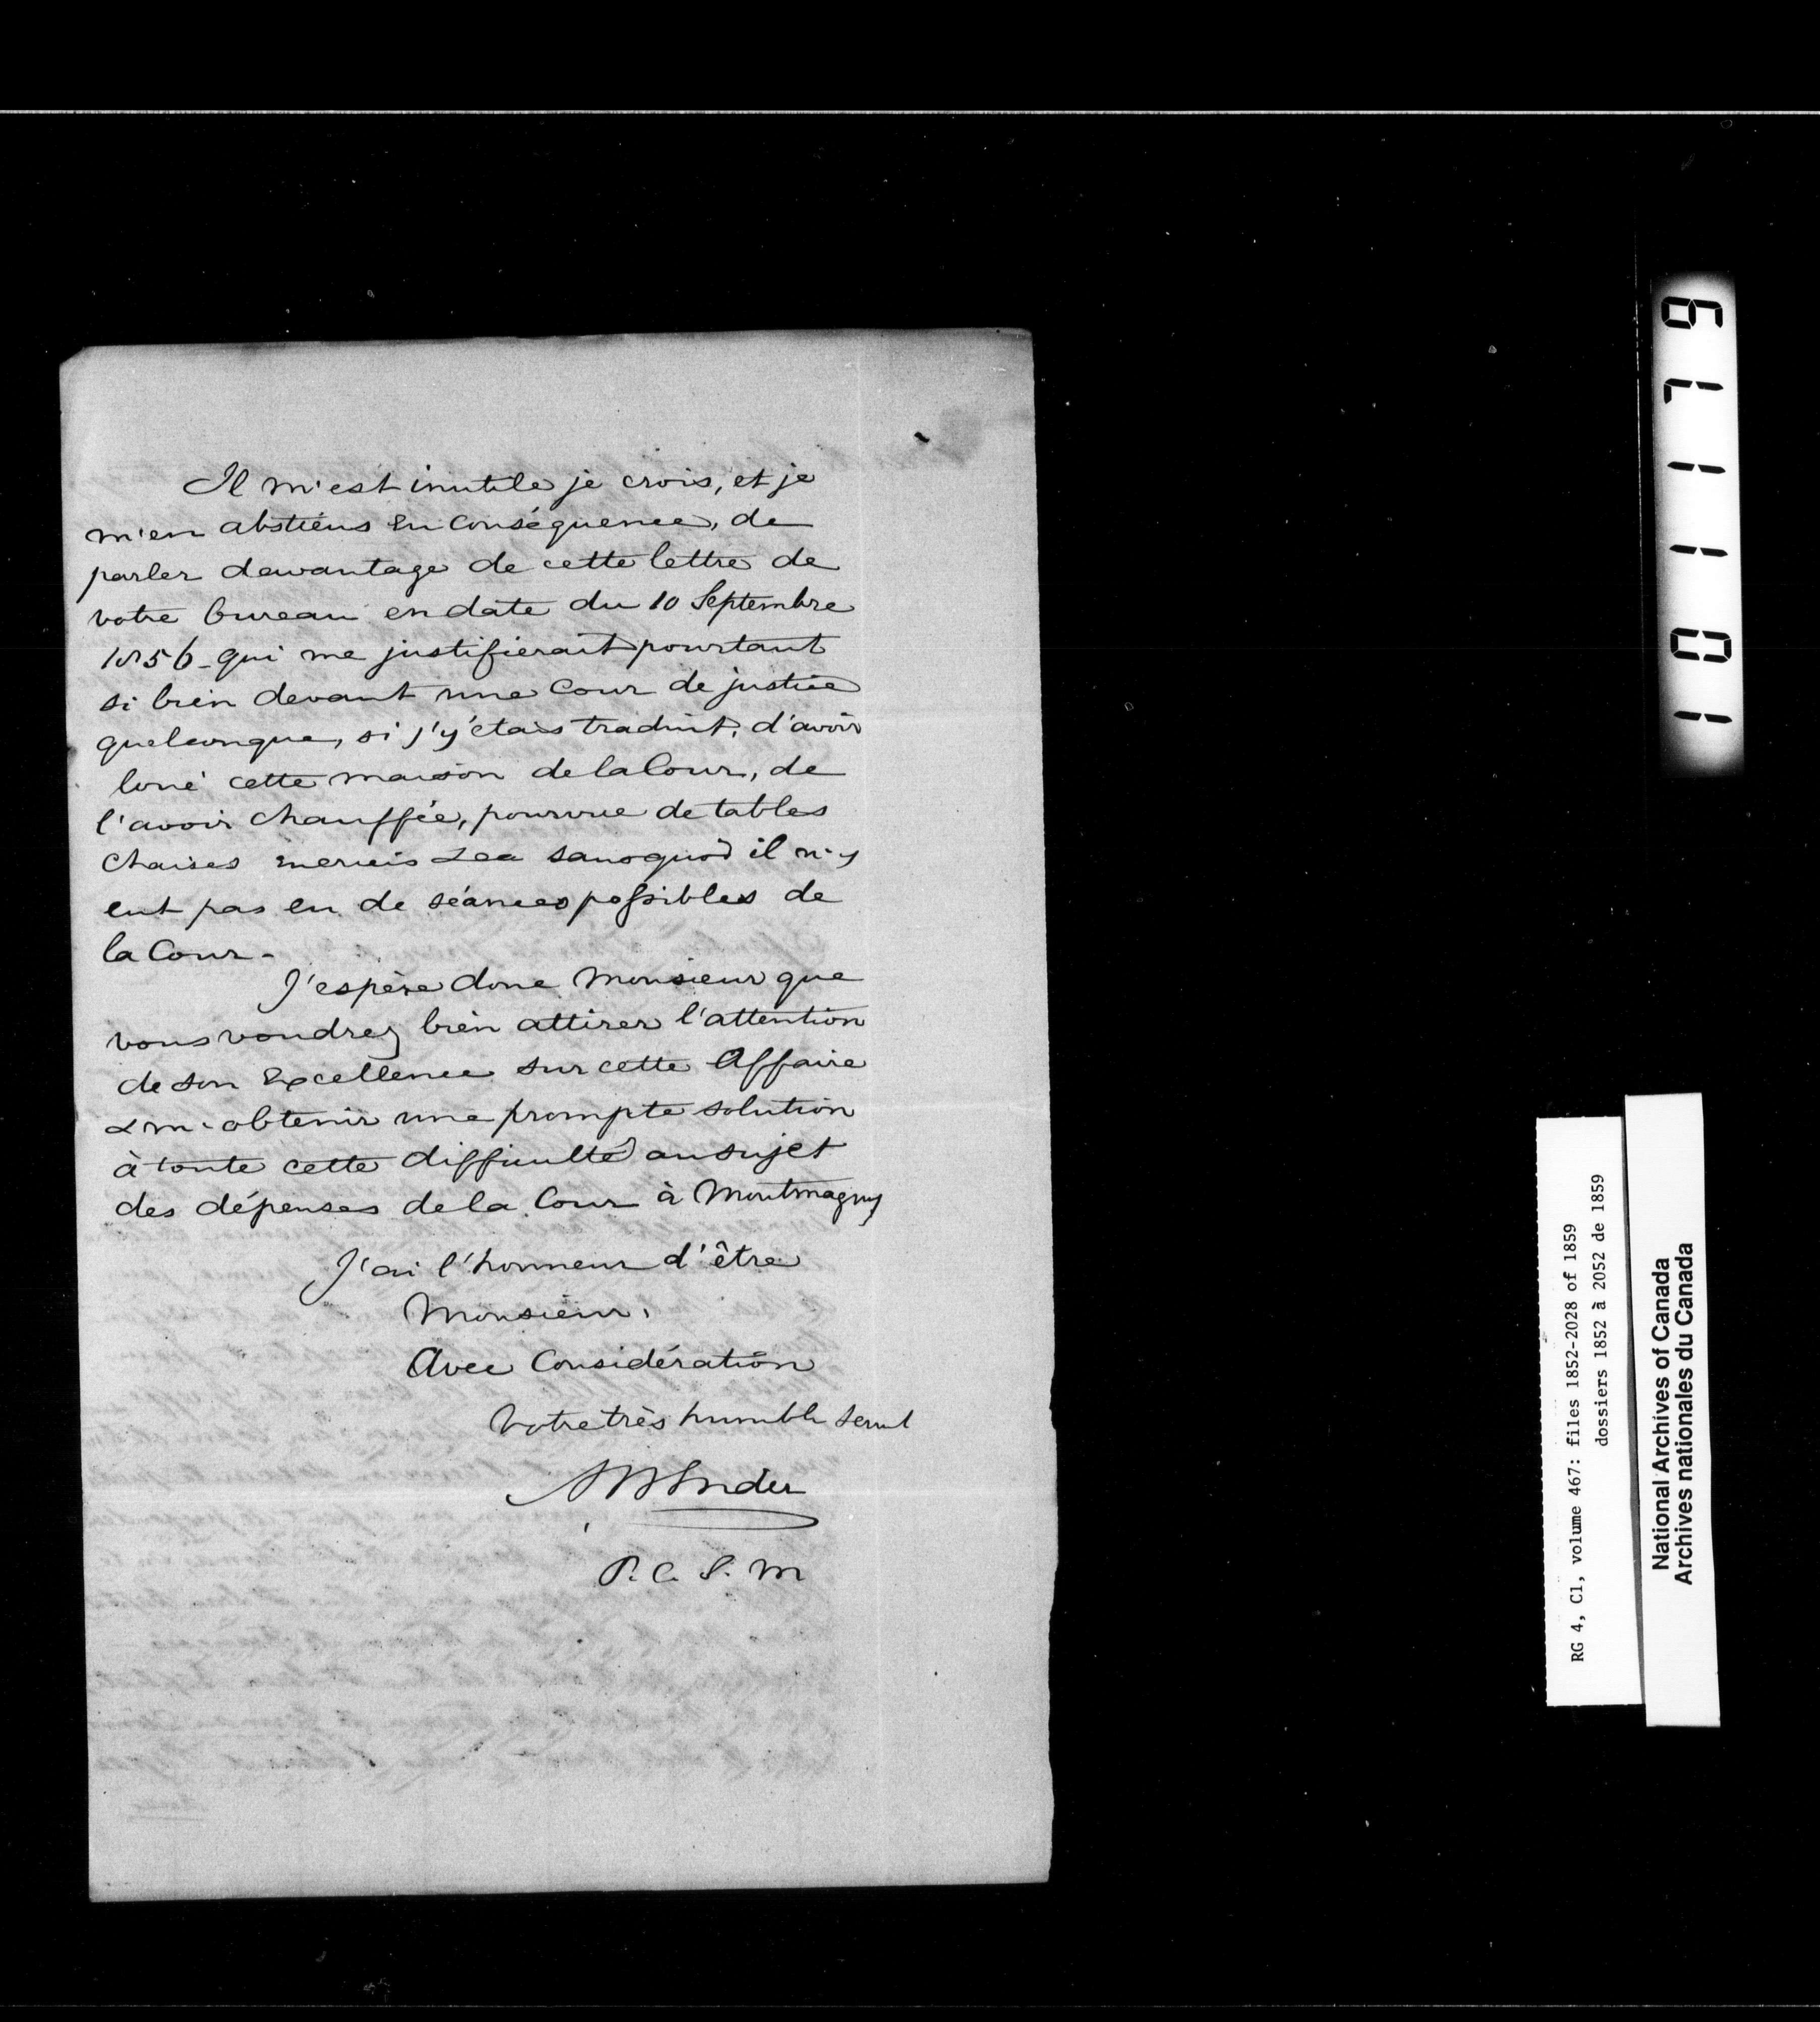 Il m'est inutile je crois, et je
m'en abstiens en conséquence, de
parler davantage de cette lettre de
votre bureau en date du 10 Septembre
1856 - qui me justifierait pourtant
si bien devant une Cour de justice
quelconque, si j'y étais traduit, d'avoir
loué cette maison de la Cour, de
l'avoir chauffée, pourvue de tables
chaises encriers &ca sans quoi il n'y
eut pas eu de séances possibles de
la Cour -
J'espère donc Monsieur que
vous voudrez bien attirer l'attention
de son Excellence sur cette Affaire
& m'obtenir une prompte solution
à toute cette difficulté au sujet
des dépenses de la Cour à Montmagny
J'ai l'honneur d'être
Monsieur,
Avec Considération
Votre très humble servt
P. C. S. M
RG 4, C1, volume 467: files 1852-2028 of 1859
dossiers 1852 à 2052 de 1859
National Archives of Canada
Archives nationales du Canada
101179